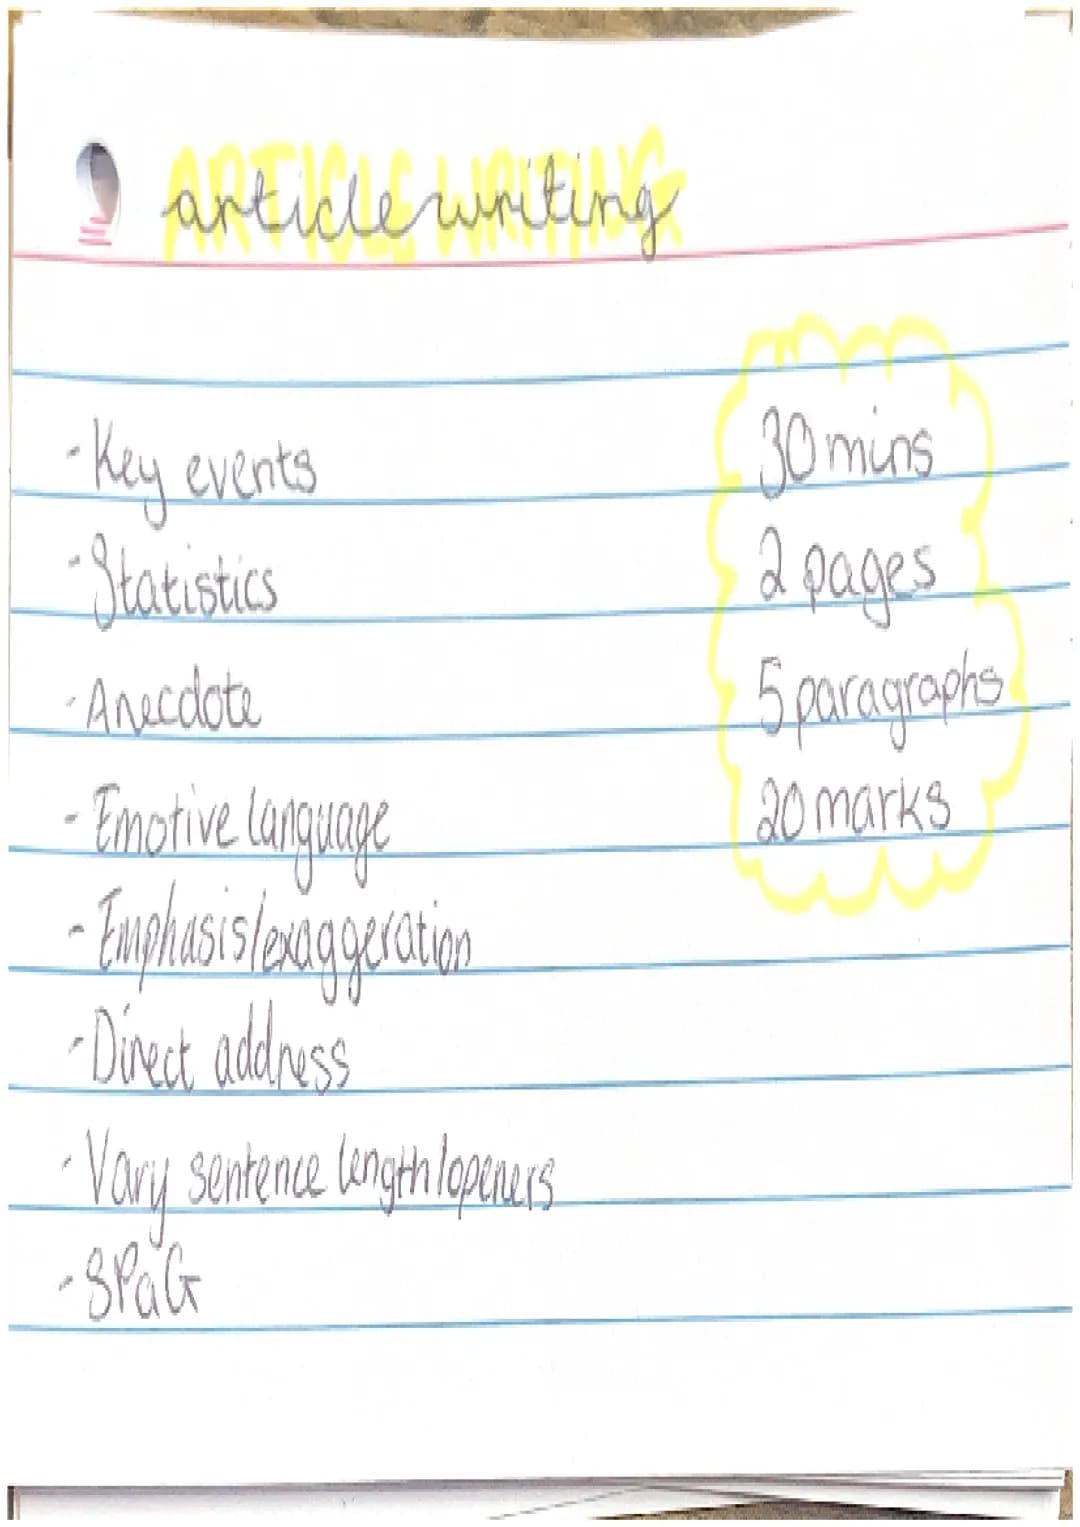 ARTICLE WRITING
article writing
- Key events
- Statistics
- Anecdote
- Emotive language
- Emphasis/exaggeration
- Direct address
- Vary sentence length/openers
- SPaG
30 mins
2 pages
5 paragraphs
20 marks